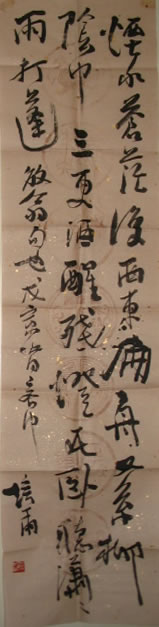 煙水蒼茫復西東扁舟又系柳
陰中三更酒醒殘燈在臥聽瀟々
雨打蓬 放翁句也 戊寅
培